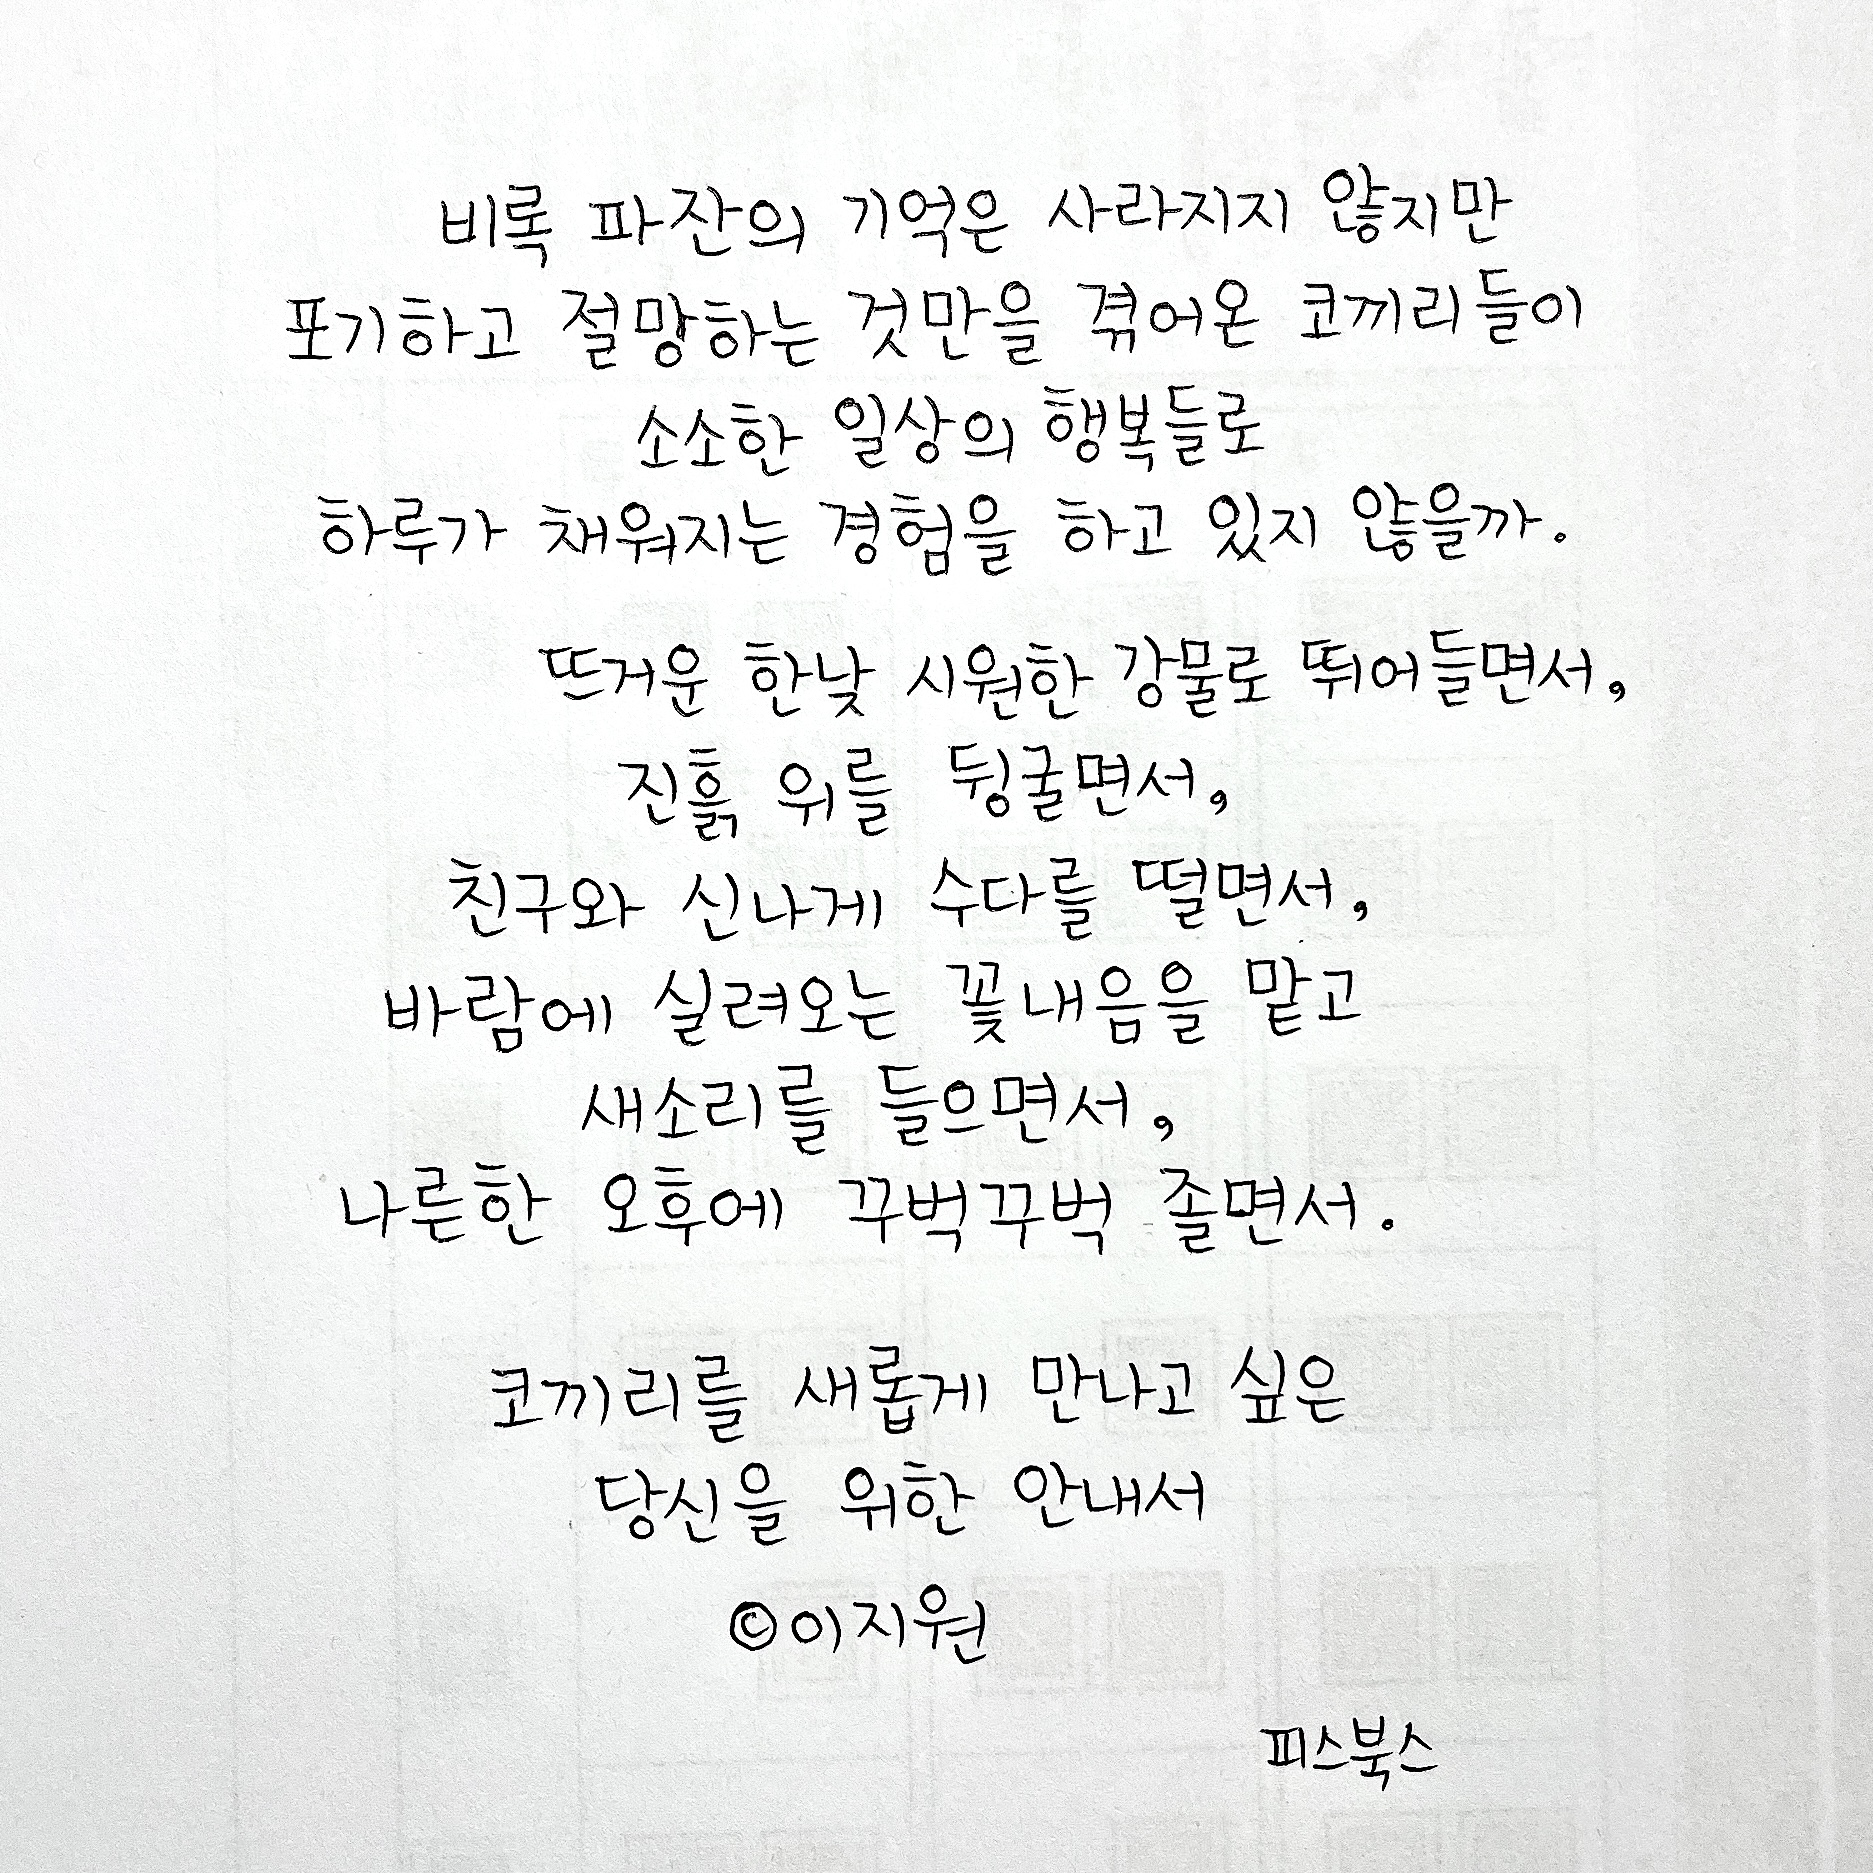 비록 파잔의 기억은 사라지지 않지만
포기하고 절망하는 것만을 겪어온 코끼리들이
소소한 일상의 행복들로
하루가 채워지는 경험을 하고 있지 않을까.
뜨거운 한낮 시원한 강물로 뛰어들면서,
진흙 위를 뒹굴면서,
친구와 신나게 수다를 떨면서,
바람에 실려오는 꽃내음을 맡고
새소리를 들으면서,
나른한 오후에 꾸벅꾸벅 졸면서.
코끼리를 새롭게 만나고 싶은
당신을 위한 안내서
©이지원
피스북스